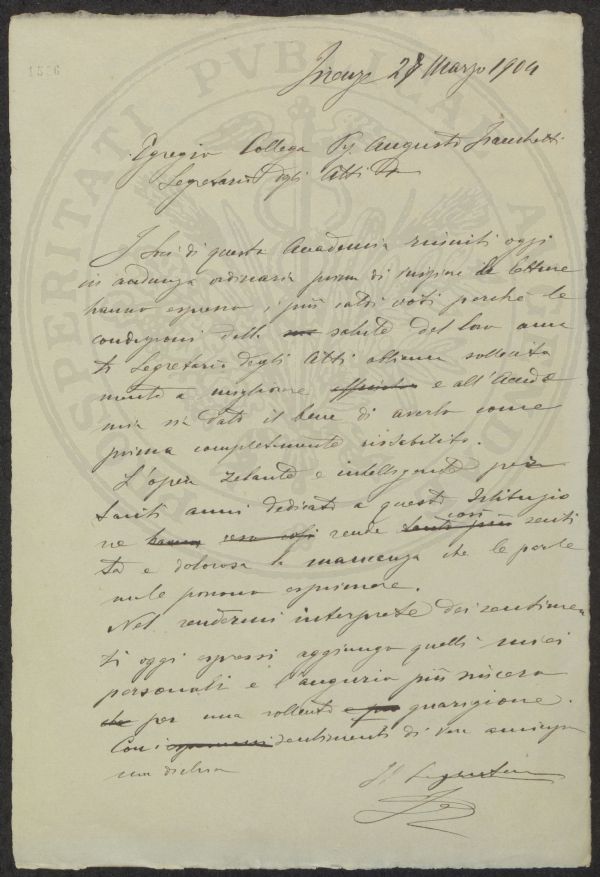 1556
Firenze 28 Marzo 1904
Egregio Collega Sig. Augusto Franchetti
Segretario degli Atti
I Soci di questa Accademia riuniti oggi
in adunanza ordinaria prima di iniziare le letture
hanno espresso i più caldi voti perché le
condizioni della salute del loro ama
to Segretario degli Atti abbiano sollecita
mente a migliorare e all'Accade
mia sia dato il bene di averlo come
prima completamente ristabilito.
L'opera zelante e intelligente per
tanti anni dedicata a questa Istituzio
ne rende così senti
ta e dolorosa la mancanza che le parole
male possono esprimere.
Nel rendermi interprete dei sentimen
ti oggi espressi aggiungo quelli miei
personali e l'augurio più sincero
per una sollecita guarigione.
Con i sentimenti di vera amicizia
mi dichiaro
Il Segretario
PROSPERITATI PVBLICAE AVGENDAE